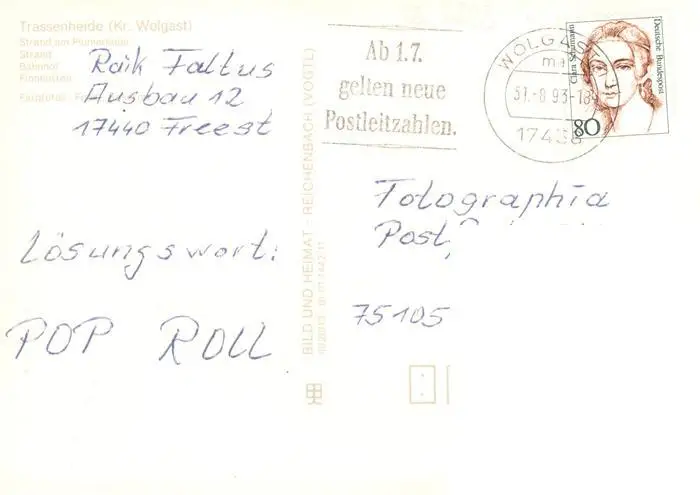 Trassenheide (Kr. Wolgast)
Strand am Prümerheim
Strand
Bahnhof
Raik Faltus
Ausbau 12
17440 Freest
Lösungswort:
POP ROLL
BILD UND HEIMAT · REICHENBACH (VOGTL)
Ab 1.7.
gelten neue
Postleitzahlen.
WOLGAST
31.-8.93-18
17438
Clara Schumann
Deutsche Bundespost
80
Fotographia
Post
75105